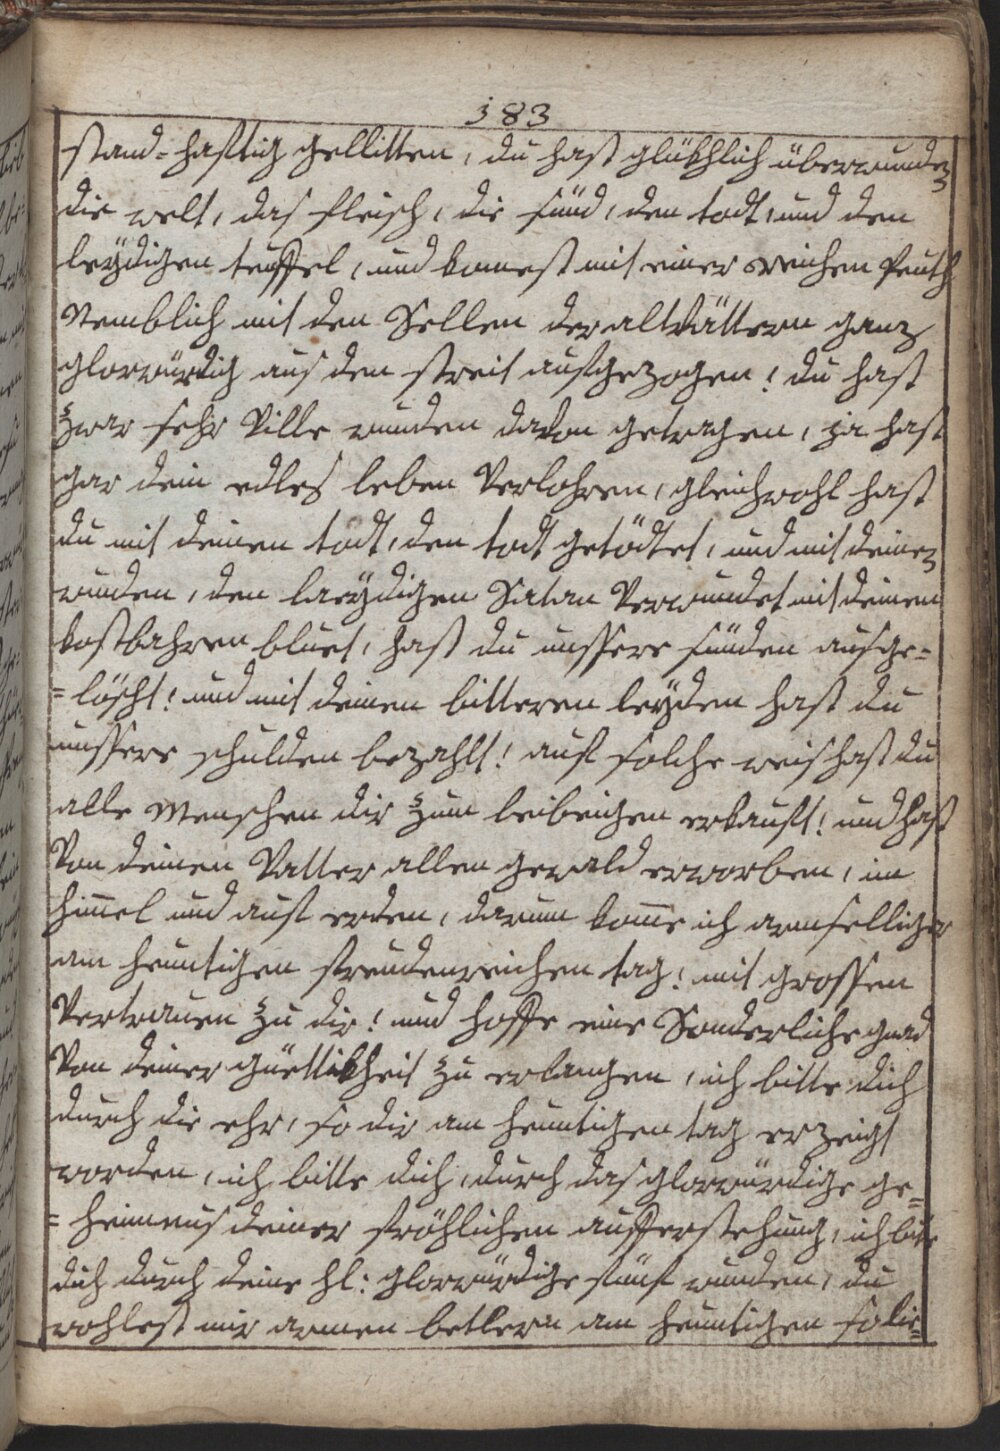 183
stand=hafftig gellitten, du hast glükhlich überwunden
die welt, das fleisch, die sünd, den todt, und den
leÿdigen teuffel, und komest mit einer reichen Peuth
Nemblich mit den Sellen der altvättern ganz
glorwürdig aus den streit aufgezogen! du hast
zwar sehr Ville wunden davon getragen, ja hast
gar dein edles leben Verlohren, gleichwohl hast
du mit deinen todt, den todt getödtet, und mit deinen
wunden, den laeÿdigen Satan Verwundet mit deinem
kostbahren bluet, hast du unssere sünden ausge=
=löscht! und mit deinen bitteren leÿden hast du
unssere schulden bezahlt! auf solche weis hast du
alle Menschen dir zum leibeigen erkaufft! und hast
Von deinen Vatter allen gewald erworben, im
himel und auf erden, darum kome ich armselliger
am heuntigen freudenreichen tag! mit grossen
Vertrauen zu dir! und hoffe eine Sonderliche gnad
Von deiner güettikheit zu erlangen, ich bitte dich
durch die ehr, so dir am heuntigen tag erzeigt
worden, ich bitte dich, durch das glorwürdige ge=
=heimnus deiner fröhlichen aufferstehung, ich bitte
dich durch deine hl: glorwürdige fünf wunden, du
wohlest mir armen betlern am heuntigen solle=